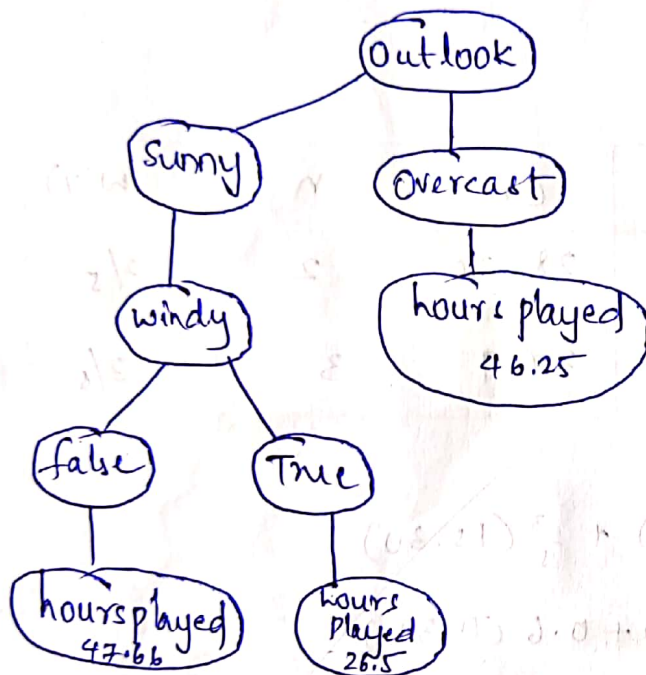 Outlook
Sunny
Overcast
windy
hours played
46.25
false
True
hours played
47.66
hours
Played
26.5